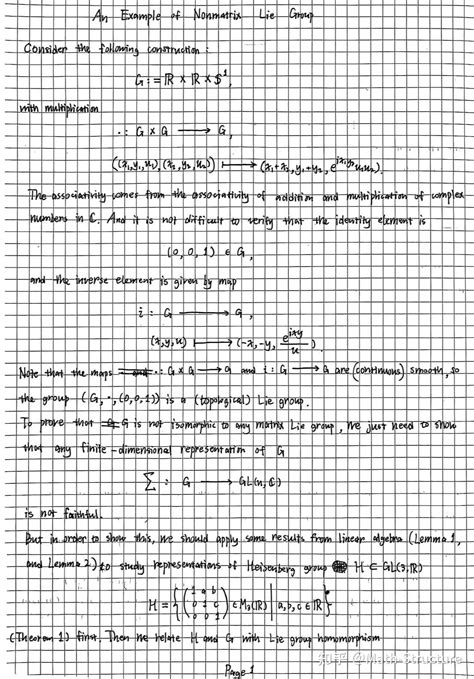 An Example of Nonmatrix Lie Group
Consider the following construction:
G := ℝ × ℝ × $¹,
with multiplication
· : G × G ⟶ G,
((x₁,y₁,u₁),(x₂,y₂,u₂)) ⟼ (x₁+x₂, y₁+y₂, e^{ix₁y₂}u₁u₂).
The associativity comes from the associativity of addition and multiplication of complex
numbers in ℂ. And it is not difficult to verify that the identity element is
(0, 0, 1) ∈ G,
and the inverse element is given by map
i : G ⟶ G,
(x,y,u) ⟼ (-x, -y, e^{ixy}/u).
Note that the maps · : G × G ⟶ G and i : G ⟶ G are (continuous) smooth, so
the group (G, ·, (0,0,1)) is a (topological) Lie group.
To prove that G is not isomorphic to any matrix Lie group, we just need to show
that any finite-dimensional representation of G
Σ : G ⟶ GL(n, ℂ)
is not faithful.
But in order to show this, we should apply some results from linear algebra (Lemma 1,
and Lemma 2) to study representations of Heisenberg group H ⊂ GL(3, ℝ)
H = { ( 1 a b / 0 1 c / 0 0 1 ) ∈ M₃(ℝ) | a, b, c ∈ ℝ }
(Theorem 1) first. Then we relate H and G with Lie group homomorphism
Page 1
知乎 @Math Structure